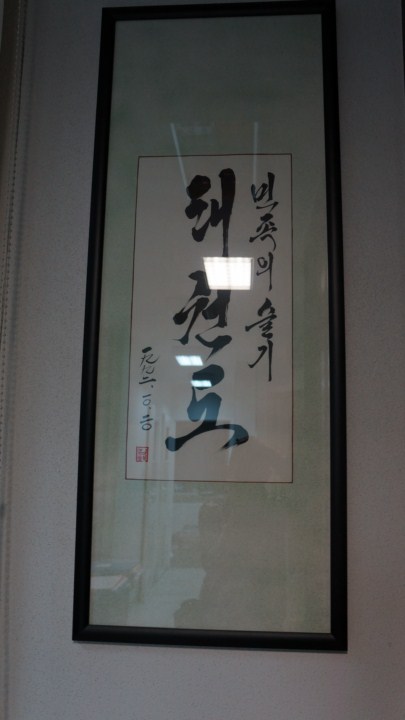 민족의 슬기
태권도